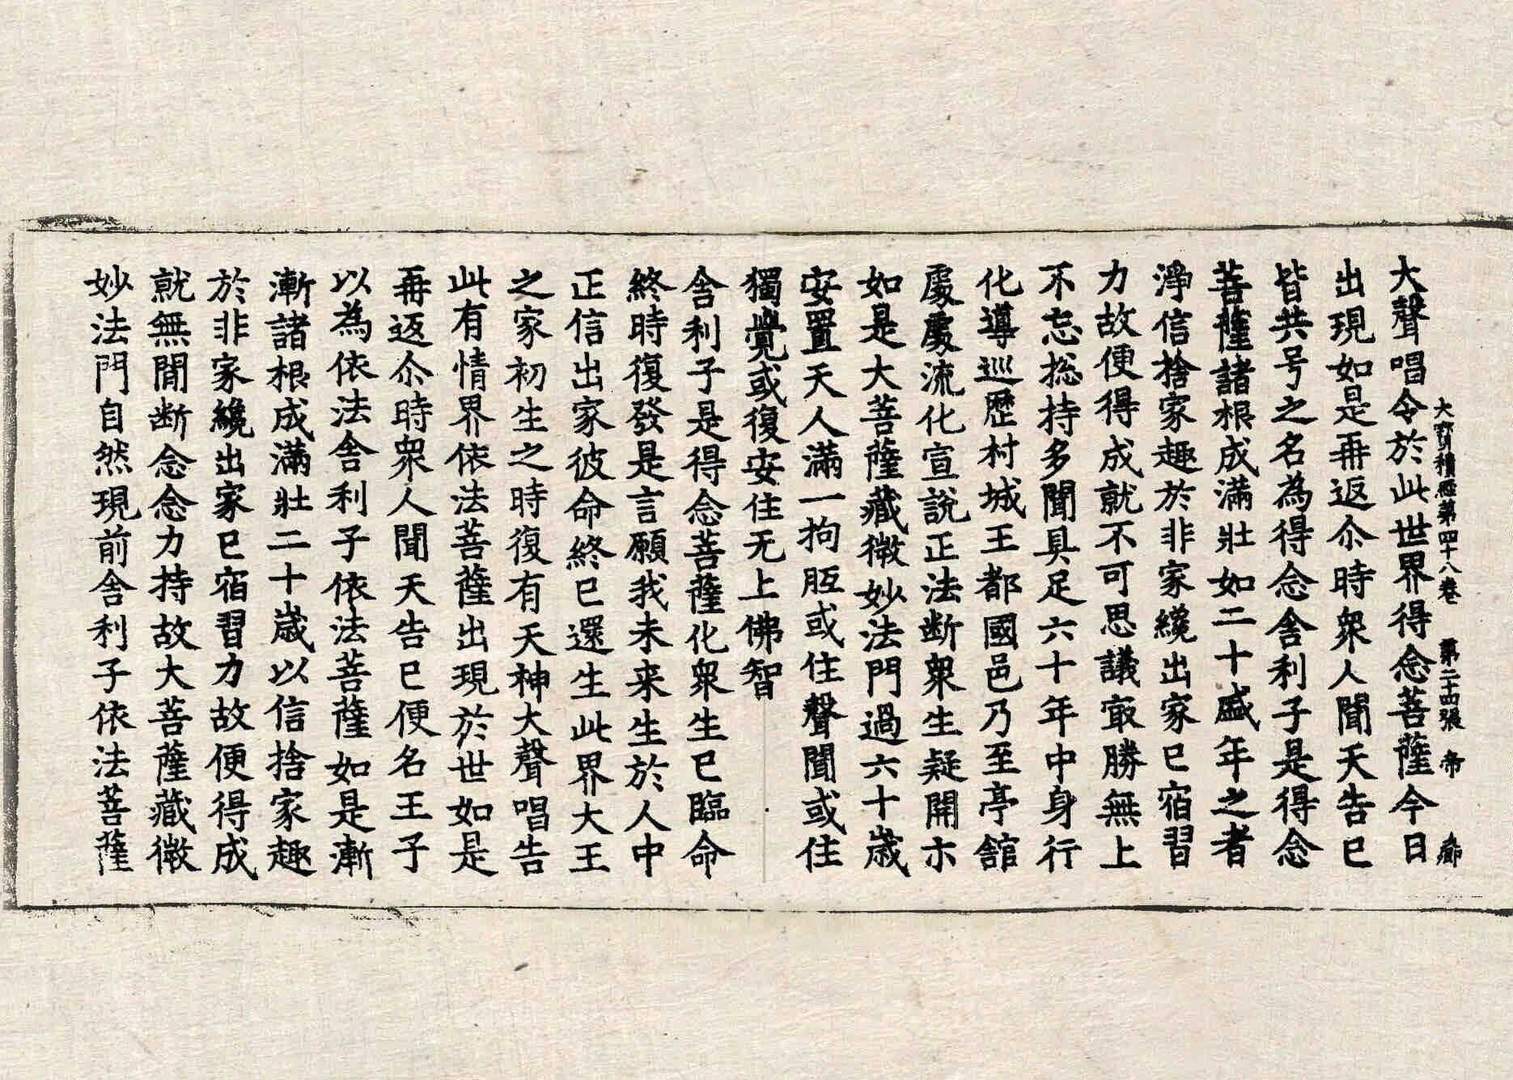 大寶積經第四十八卷 第二十四張 帝 
大聲唱令於此世界得念菩薩今日
出現如是再返尒時眾人聞天告已
皆共号之名為得念舍利子是得念
菩薩諸根成滿壯如二十盛年之者
淨信捨家趣於非家纔出家已宿習
力故便得成就不可思議㝡勝無上
不忘捴持多聞具足六十年中身行
化導巡歷村城王都國邑乃至亭館
處處流化宣說正法断眾生疑開示
如是大菩薩藏微妙法門過六十歲
安置天人滿一拘胝或住聲聞或住
獨覺或復安住无上佛智
舍利子是得念菩薩化眾生已臨命
終時復發是言願我未來生於人中
正信出家彼命終已還生此界大王
之家初生之時復有天神大聲唱告
此有情界依法菩薩出現於世如是
再返尒時眾人聞天告已便名王子
以為依法舍利子依法菩薩如是漸
漸諸根成滿壯二十歲以信捨家趣
於非家纔出家已宿習力故便得成
就無間断念念力持故大菩薩藏微
妙法門自然現前舍利子依法菩薩